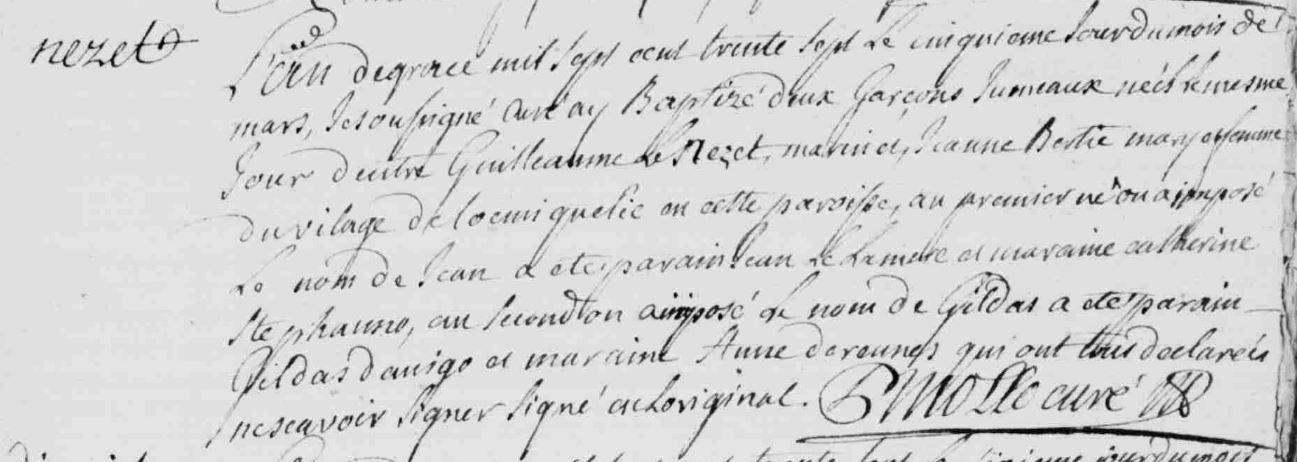 nezet
L'an de grace mil sept cent trente sept Le cinquieme Jour du mois de
mars, Je soussigné Curé ay Baptizé deux Garçons Jumeaux néés le mesme
Jour d'entre Guilleaume Le Nezet, marin et, Jeanne Bertic mary et femme
du vilage de locmiquelic en cette paroisse, au premier né on a jmposé
Le nom de Jean a eté parain Jean Le et maraine catherine
Stephanno, au second on a imposé Le nom de Gildas a eté parain
Gildas danigo et maraine Anne derennes qui ont tous declarés
ne scavoir signer signé en Loriginal. curé